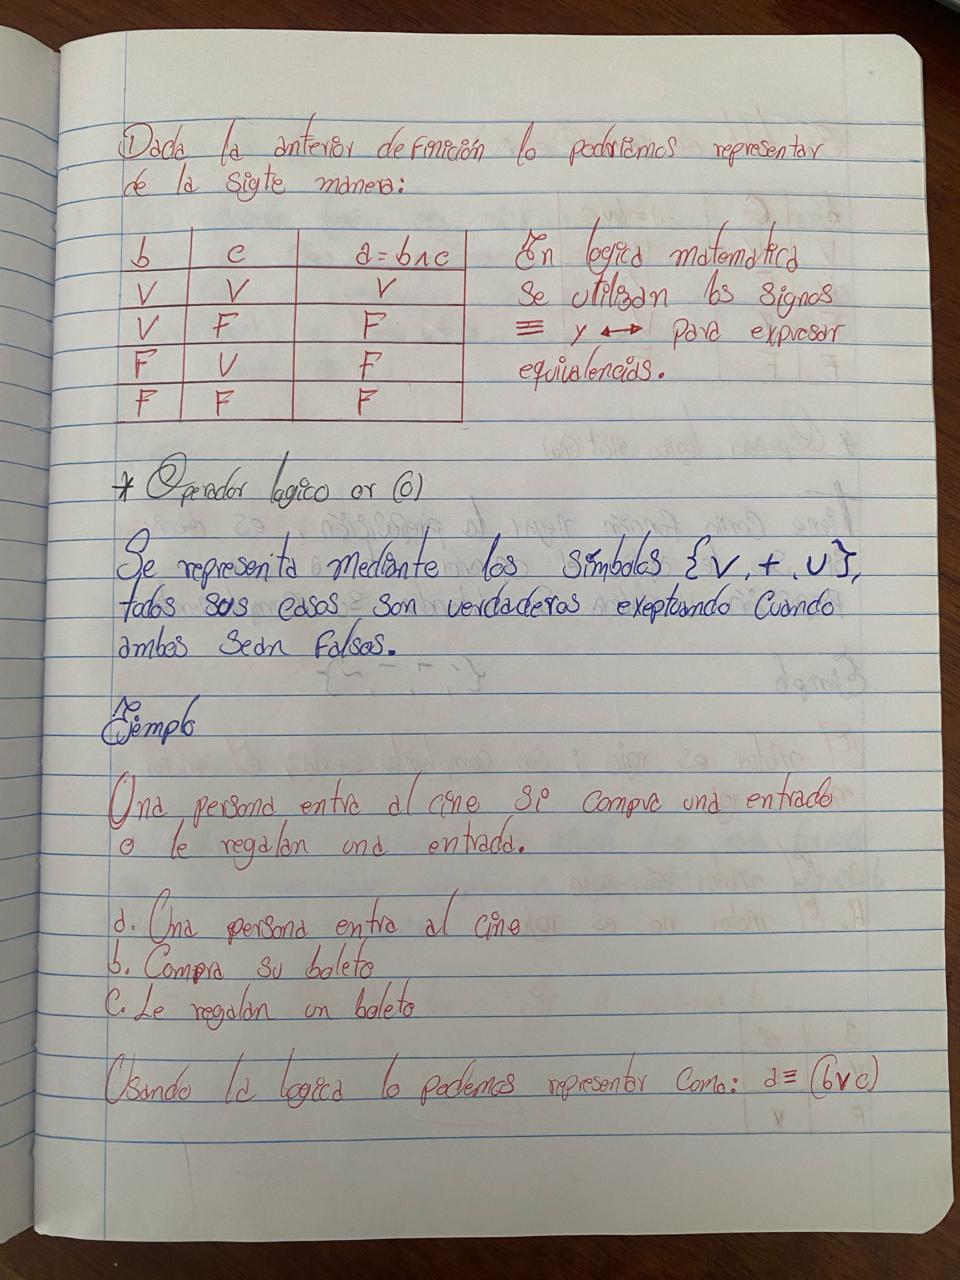 Dada la anterior definición lo podriamos representar
de la sigte manera:
b c a = b∧c
V V V
V F F
F V F
F F F
En logica matematica
se utilizan los signos
≡ y ↔ para expresar
equivalencias.
* Operador logico or (o)
Se representa mediante los simbolos {V, +, U},
todos sus casos son verdaderos exeptuando cuando
ambos sean falsos.
Ejemplo
Una persona entra al cine si compra una entrada
o le regalan una entrada.
a. Una persona entra al cine
b. Compra su boleto
c. Le regalan un boleto
Usando la logica lo podemos representar como: a ≡ (b∨c)